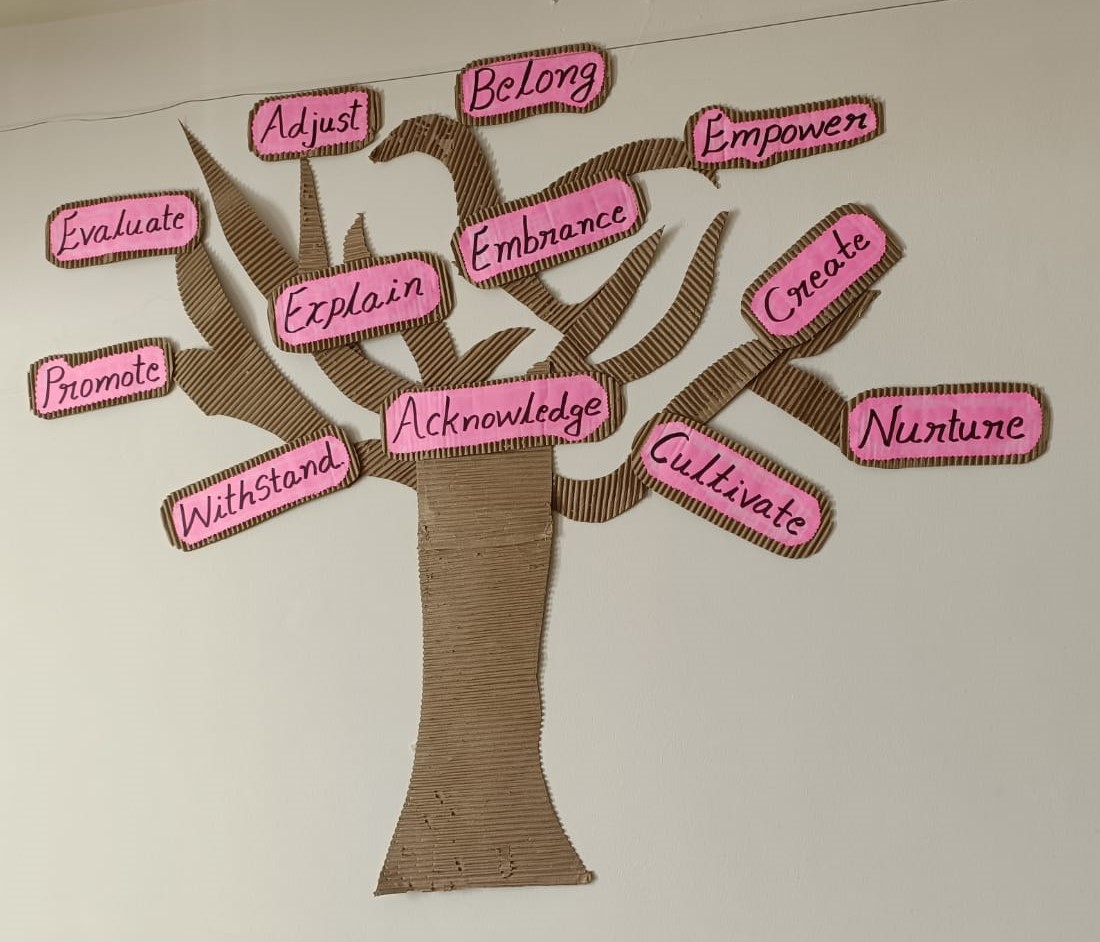 Belong
Adjust
Empower
Evaluate
Embrance
Create
Explain
Promote
Acknowledge
Nurture
Withstand
Cultivate